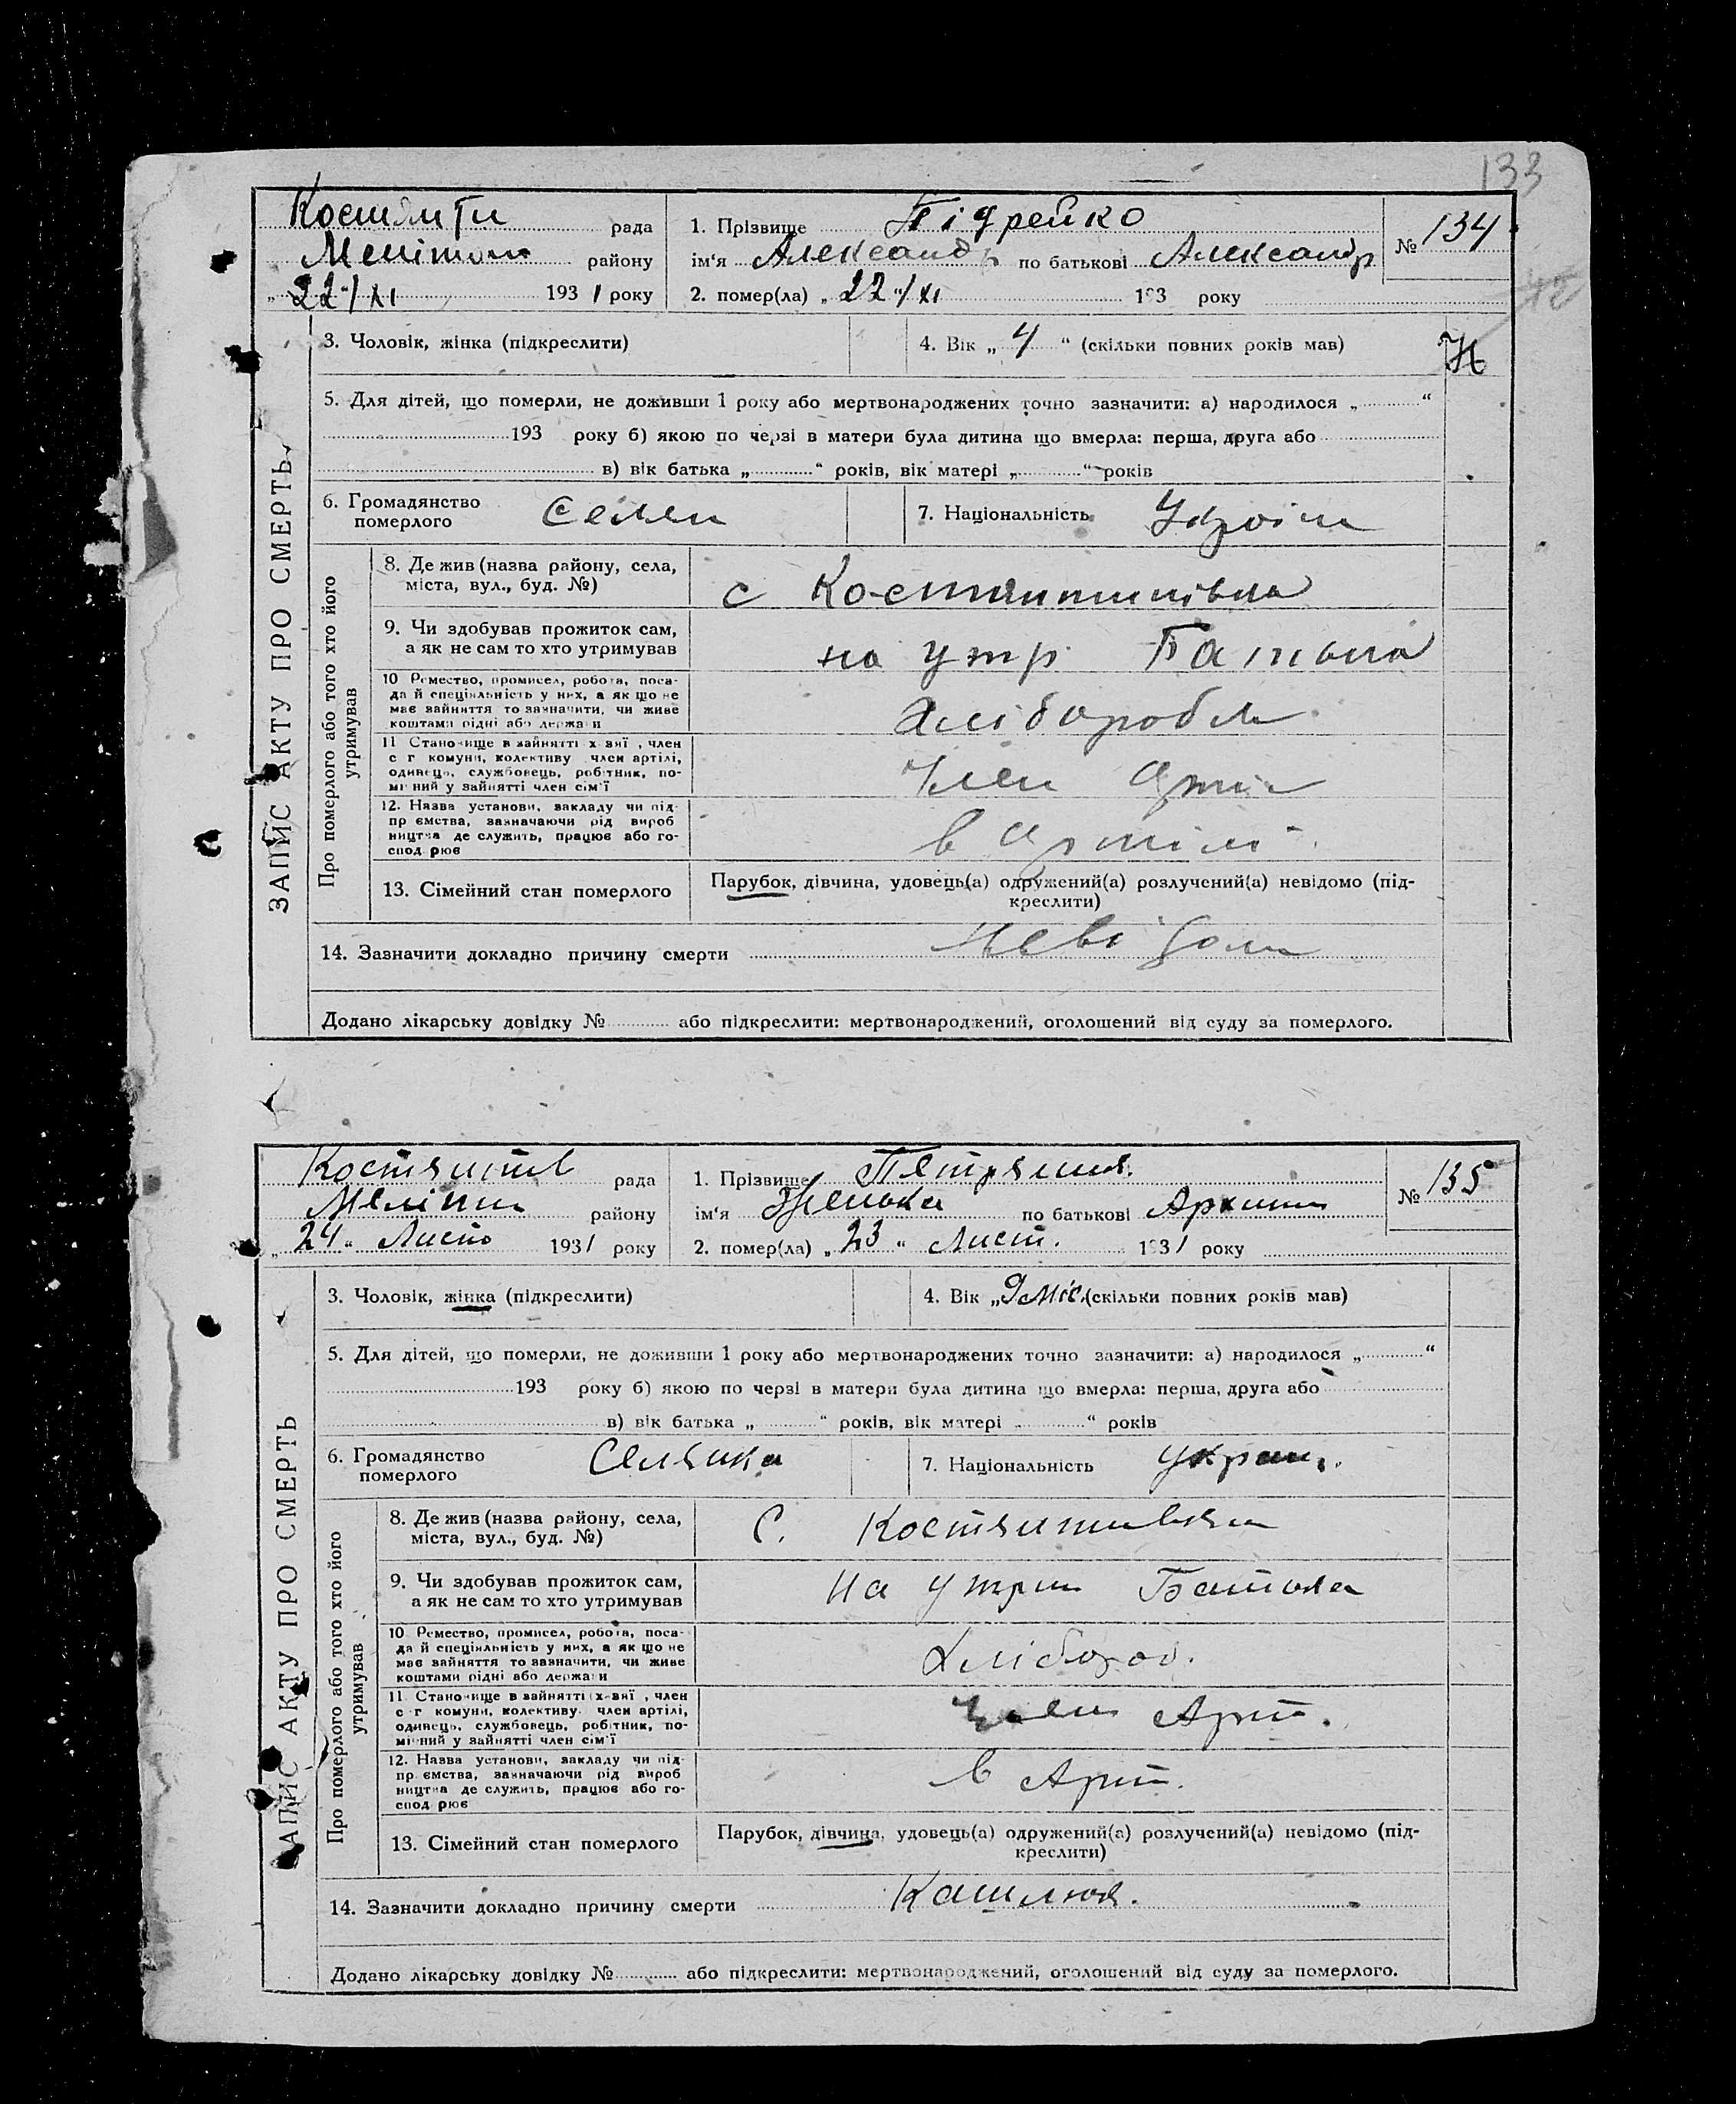 133
Костянти рада
Меліт району
22/XI 1931 року
1. Прізвище Підрейко
ім‘я Александр по батькові Александр
2. помер(ла) „ 22 “/XI 193 року
№ 134
3. Чоловік, жінка (підкреслити)
4. Вік „ 4 “ (скільки повних років мав)
Н
5. Для дітей, що померли, не доживши 1 року або мертвонароджених точно зазначити: а) народилося „ “
193 року б) якою по черзі в матери була дитина що вмерла: перша, друга або
в) вік батька „ “ років, вік матері „ “ років
6. Громадянство
померлого
Селян
7. Національність Украін
ЗАПИС АКТУ ПРО СМЕРТЬ
Про померлого або того хто його
утримував
8. Де жив (назва району, села,
міста, вул., буд. №)
с Костянтинівка
9. Чи здобував прожиток сам,
а як не сам то хто утримував
на утр Батька
10 Ремество, промисел, робота, поса-
да й спеціяльність у них, а як що не
має зайняття то зазначити, чи живе
коштами рідні або держави
Хлібороб
11 Становище в зайнятті х-вяї, член
с г комуни, колективу член артілі,
одинець, службовець, робітник, по-
мічний у зайнятті член сім‘ї
Член Арті
12. Назва установи, закладу чи під-
пр ємства, зазначаючи рід вироб
ництва де служить, працює або го-
спод рює
в Артілі
13. Сімейний стан померлого
Парубок, дівчина, удовець(а) одружений(а) розлучений(а) невідомо (під-
креслити)
14. Зазначити докладно причину смерти Невідом
Додано лікарську довідку № або підкреслити: мертвонароджений, оголошений від суду за померлого.
Костянтів рада
Меліт району
„ 24 “ Листо 1931 року
1. Прізвище Петряшя.
ім‘я Женька по батькові Архип
2. помер(ла) „ 23 “ Лист. 1931 року
№ 135
3. Чоловік, жінка (підкреслити)
4. Вік „ 9 міс. (скільки повних років мав)
5. Для дітей, що померли, не доживши 1 року або мертвонароджених точно зазначити: а) народилося „ “
193 року б) якою по черзі в матери була дитина що вмерла: перша, друга або
в) вік батька „ “ років, вік матері „ “ років
6. Громадянство
померлого
Селянка
7. Національність Украін.
ЗАПИС АКТУ ПРО СМЕРТЬ
Про померлого або того хто його
утримував
8. Де жив (назва району, села,
міста, вул., буд. №)
С. Костянтивка
9. Чи здобував прожиток сам,
а як не сам то хто утримував
На утрим Батька
10 Ремество, промисел, робота, поса-
да й спеціяльність у них, а як що не
має зайняття то зазначити, чи живе
коштами рідні або держави
Хлібороб.
11 Становище в зайнятті х-вяї, член
с г комуни, колективу член артілі,
одинець, службовець, робітник, по-
мічний у зайнятті член сім‘ї
Член Арт.
12. Назва установи, закладу чи під-
пр ємства, зазначаючи рід вироб
ництва де служить, працює або го-
спод рює
в Арт.
13. Сімейний стан померлого
Парубок, дівчина, удовець(а) одружений(а) розлучений(а) невідомо (під-
креслити)
14. Зазначити докладно причину смерти Кашлюк.
Додано лікарську довідку № або підкреслити: мертвонароджений, оголошений від суду за померлого.